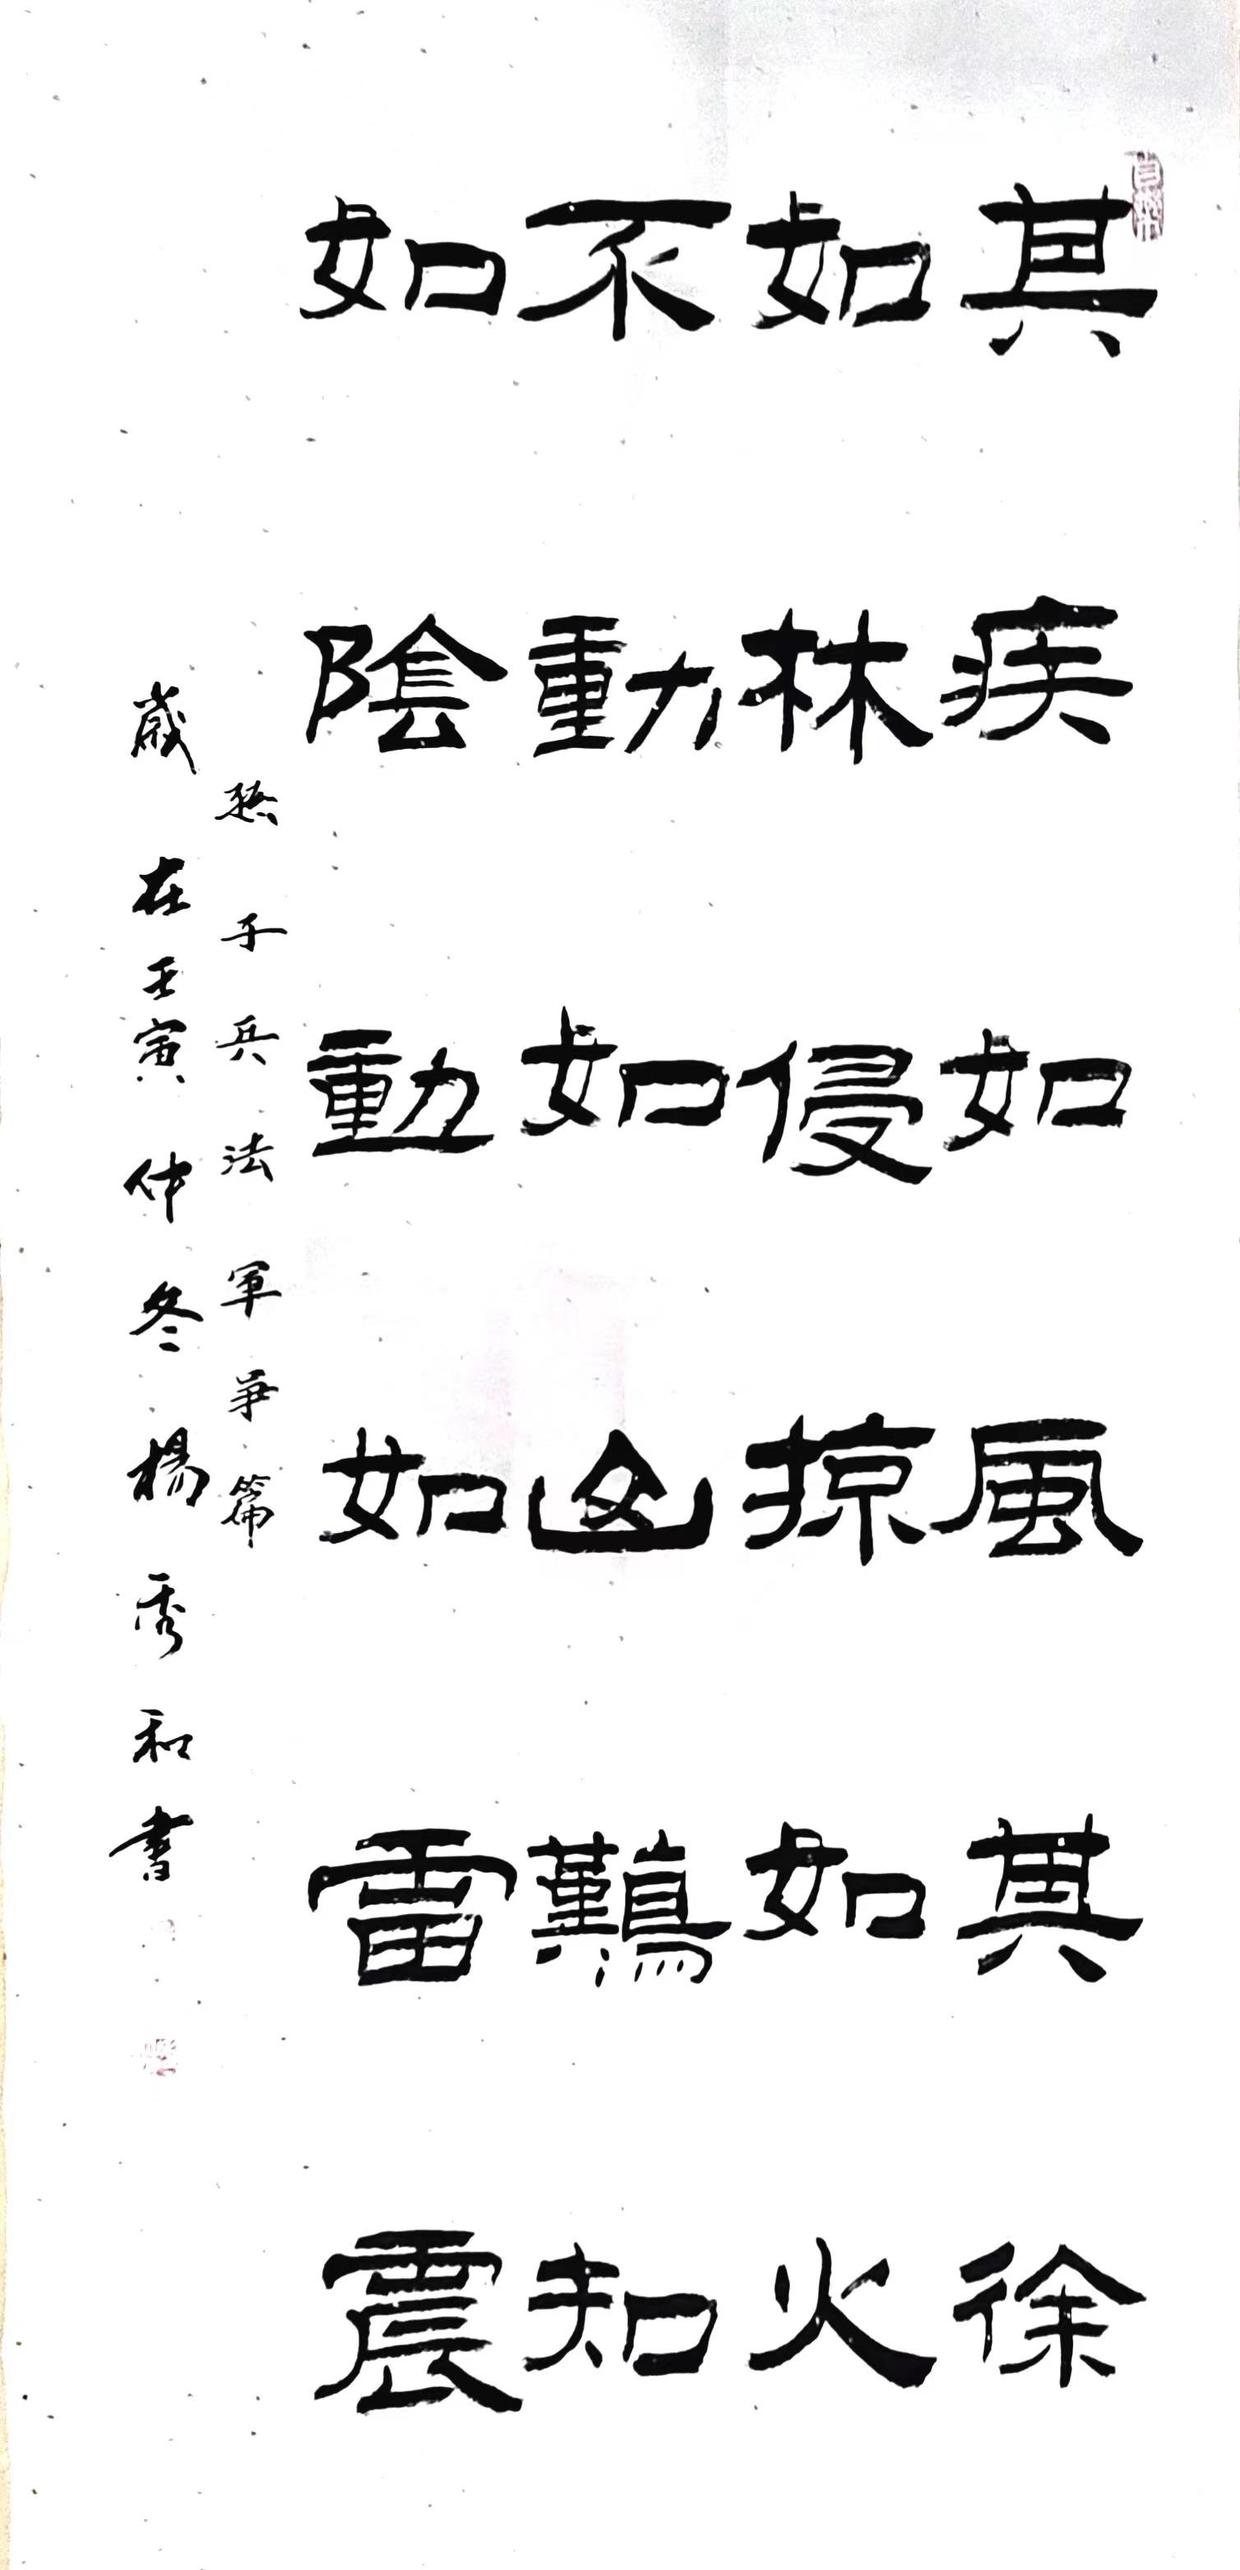 其疾如風其徐
如林侵掠如火
不動如山鷬知
如陰動如雷震
孫子兵法軍爭篇
歲在壬寅仲冬楊秀和書